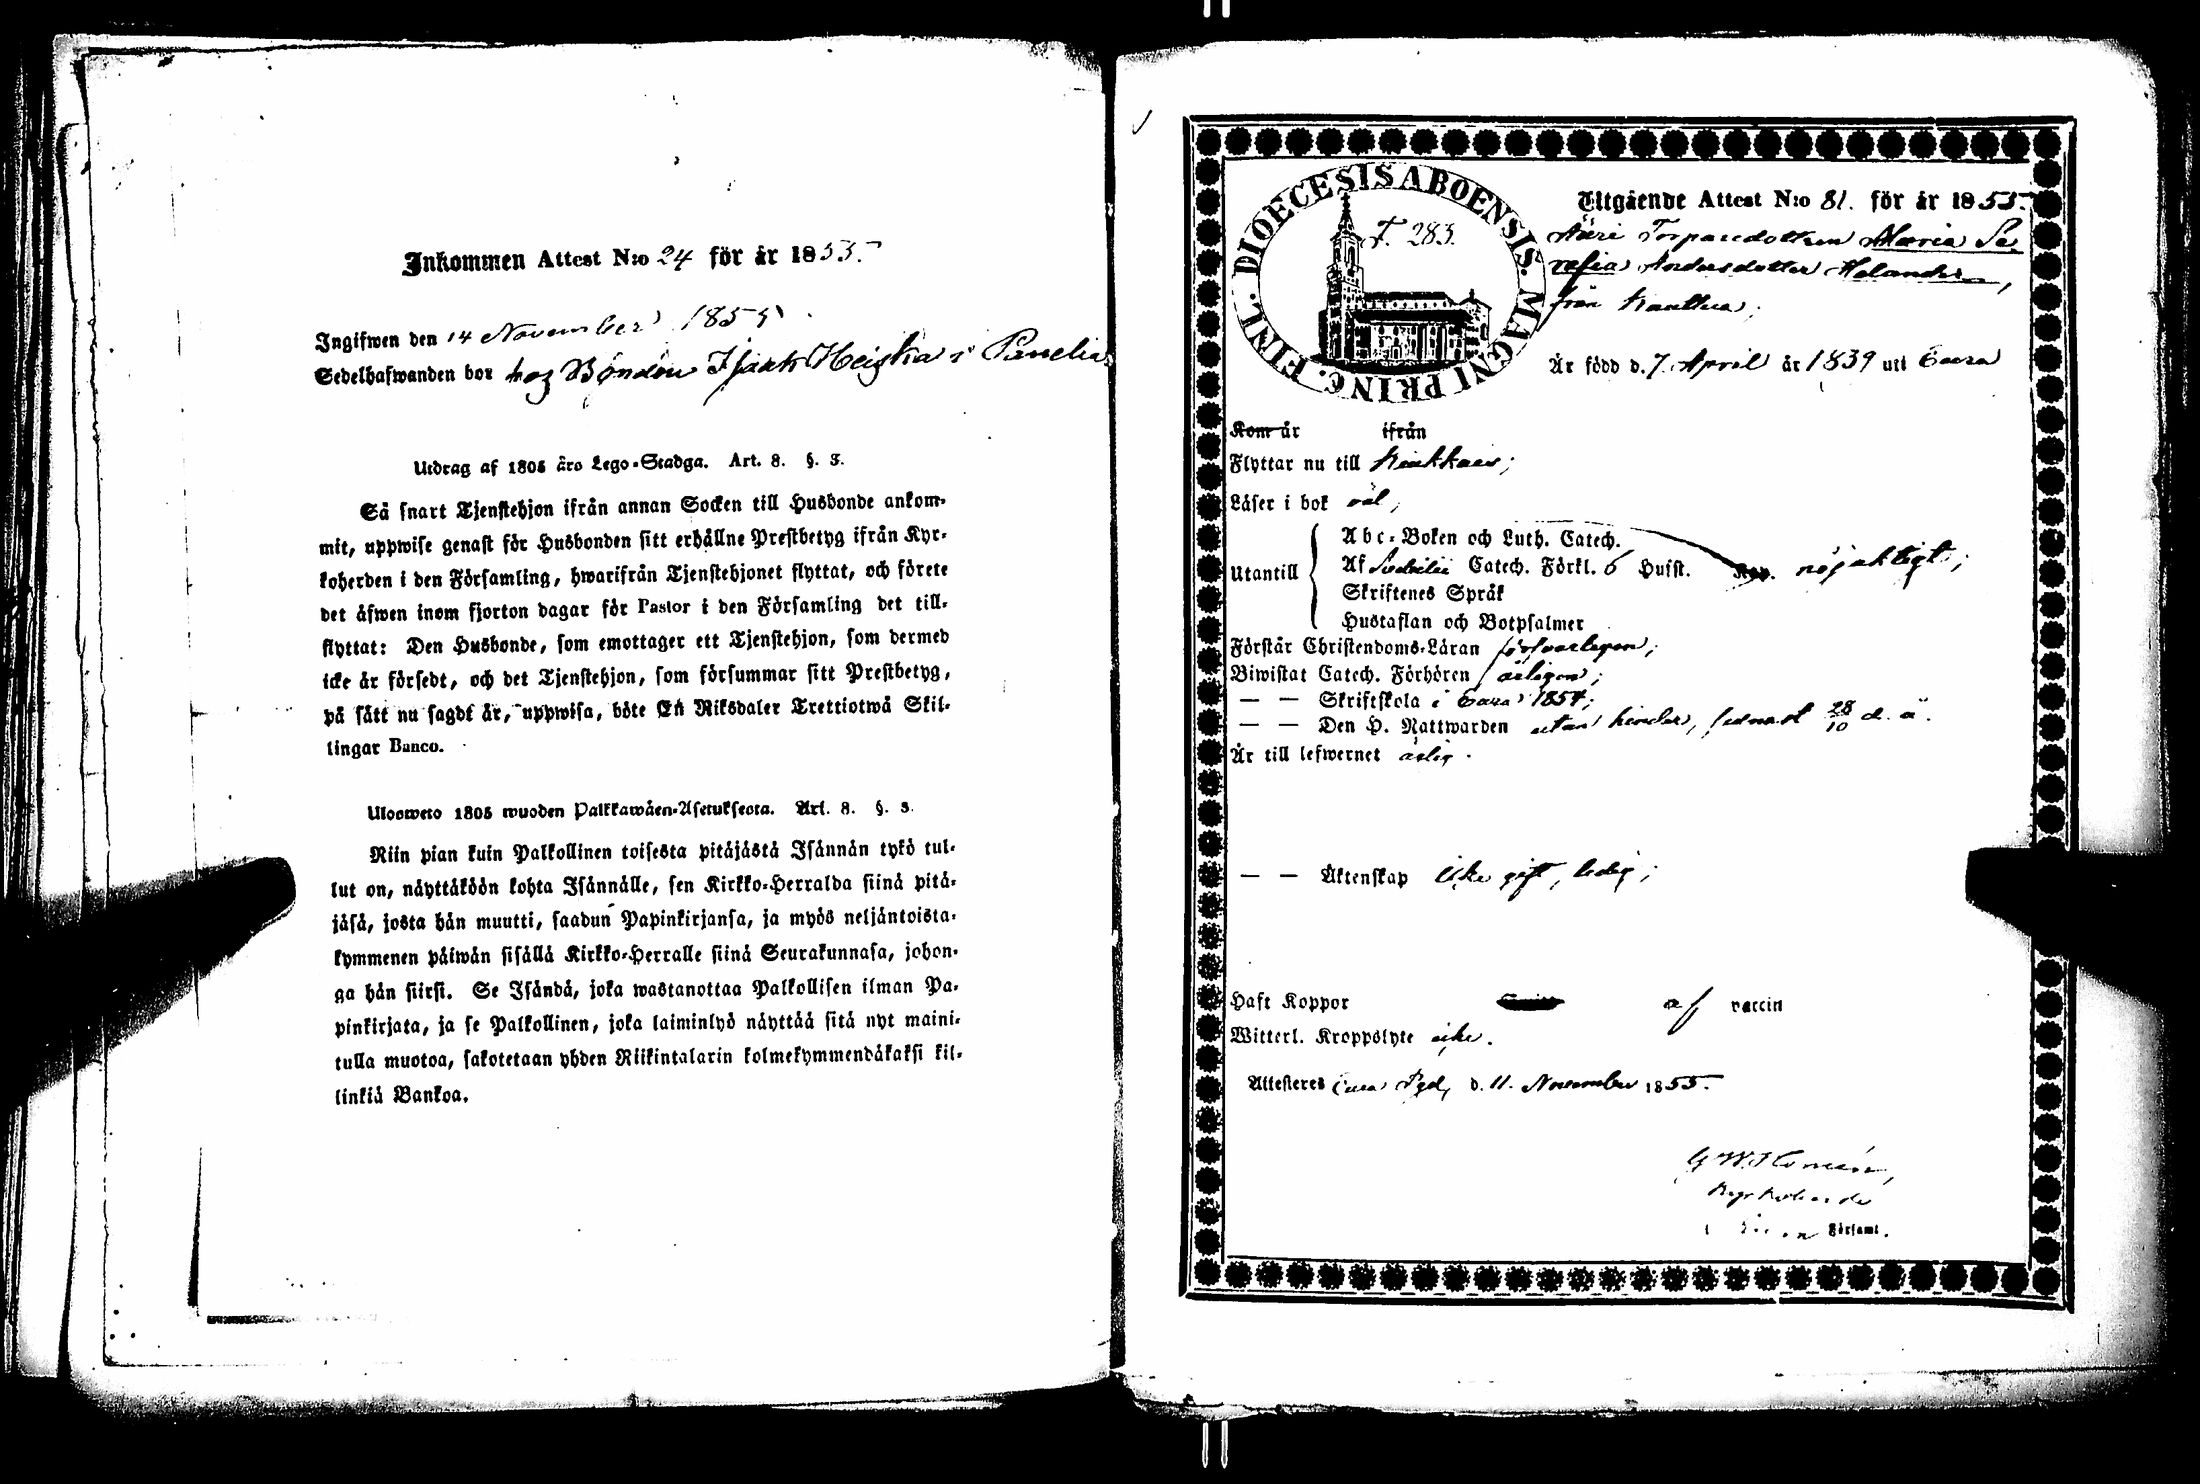 Inkommen Attest N:o 24 för år 1855.
Ingifwen den 14 November 1855
Sedelhafwanden bor hos Bonden Isaak Heiska i Panelia
Utdrag af 1805 års Lego-Stadga. Art. 8. §. 3.
Så snart Tjenstehjon ifrån annan Socken till Husbonde ankom-
mit, uppwise genast för Husbonden sitt erhållne Prestbetyg ifrån Kyr-
koherden i den Församling, hwarifrån Tjenstehjonet flyttat, och förete
det äfwen inom fjorton dagar för Pastor i den Församling det till-
flyttat: Den Husbonde, som emottager ett Tjenstehjon, som dermed
icke är försedt, och det Tjenstehjon, som försummar sitt Prestbetyg,
på sätt nu sagdt är, uppwisa, böte En Riksdaler Trettiotwå Skil-
lingar Banco.
Ulosweto 1805 wuoden Palkkawäen-Asetuksesta. Art. 8. §. 3.
Niin pian kuin Palkollinen toisesta pitäjästä Isännän tykö tul-
lut on, näyttäköön kohta Isännälle, sen Kirkko-Herralda siinä pitä-
jäsä, josta hän muutti, saadun Papinkirjansa, ja myös neljäntoista-
kymmenen päiwän sisällä Kirkko-Herralle siinä Seurakunnasa, johon-
ga hän siirsi. Se Isändä, joka wastanottaa Palkollisen ilman Pa-
pinkirjata, ja se Palkollinen, joka laiminlyö näyttää sitä nyt maini-
tulla muotoa, sakotetaan yhden Riikintalarin kolmekymmendäkaksi kil-
linkiä Bankoa.
DIOECESIS ABOENSIS. MAGNI PRINC. FINL.
F. 283.
Utgående Attest N:o 81. för år 1855.
Torparedottren Maria Se-
refia Andersdotter Helander,
från Kauttua;
Är född d. 7. April år 1839 uti Eura
Kom år ifrån
Flyttar nu till Kiukkais;
Läser i bok väl;
Utantill
Abc-Boken och Luth. Catech.
Af Svebilii Catech. Förkl. 6 Hufst. Kap. nöjaktigt;
Skriftenes Språk
Hustaflan och Botpsalmer
Förstår Christendoms-Läran försvarligen;
Biwistat Catech. Förhören årligen;
— — Skriftskola i Eura 1854;
— — Den H. Nattwarden utan hinder, sednast 28/10 d. å.
Är till lefwernet ärlig.
— — Äktenskap icke gift, ledig;
Haft Koppor af vaccin
Witterl. Kroppslyte icke.
Attesteres Eura Pgd, d. 11. November 1855.
Kyrkoherde
i Församl.